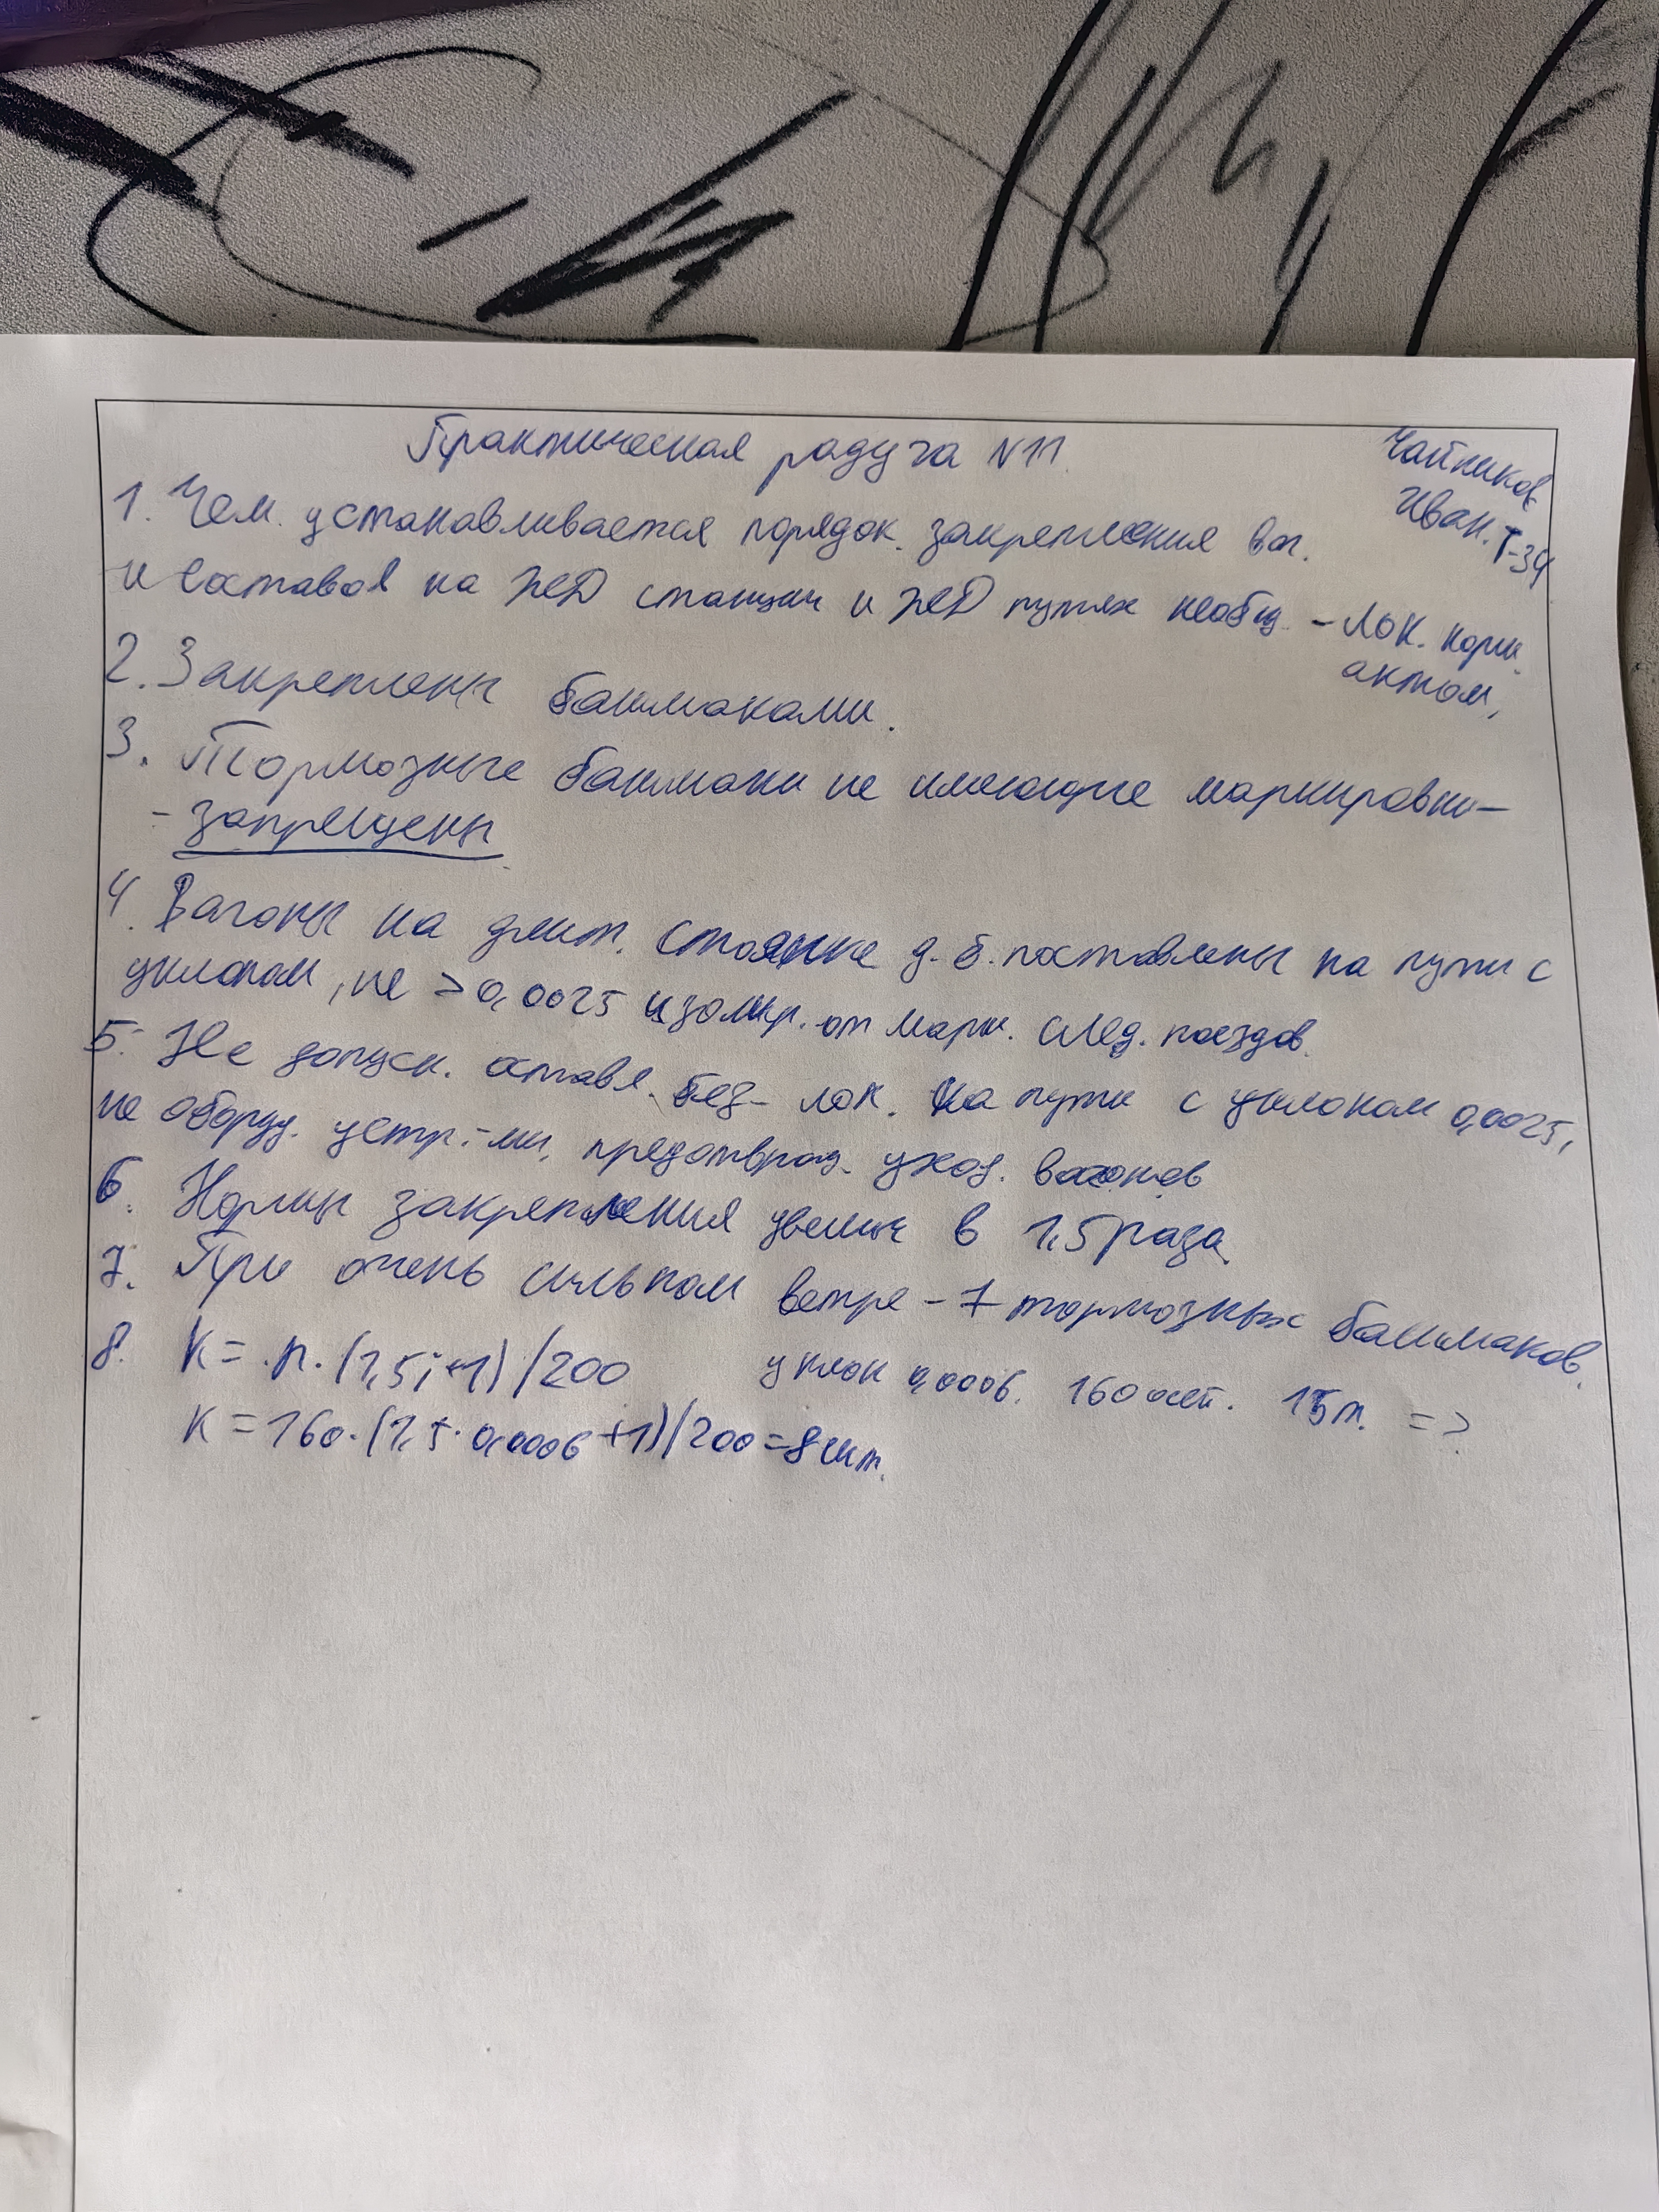 Практическая радуга N11.
Чайников
Иван. Т-34
1. Чем. устанавливается порядок. закрепления ваг.
и составов на ЖД станции и ЖД путях необщ. - Лок. норм.
актом,
2. Закреплены башмаками.
3. Тормозные башмаки не имеющие маркировки-
- запрещены
4. Вагоны на длит. стоянке д.б. поставлены на пути с
уклоном, не > 0,0025 изолир. от марш. след. поездов.
5. Не допуск. оставл. без- лок. на пути с уклоном 0,0025,
не оборуд. устр.-ми, предотвращ. уход. вагонов
6. Нормы закрепления увелич в 1,5 раза.
7. При очень сильном ветре - 7 тормозных башмаков.
8. K = n. (1,5i+1) /200 уклон 0,0006. 160 осей. 15т. => 
K = 160. (1,5. 0,0006 +1)/200 = 8 шт.